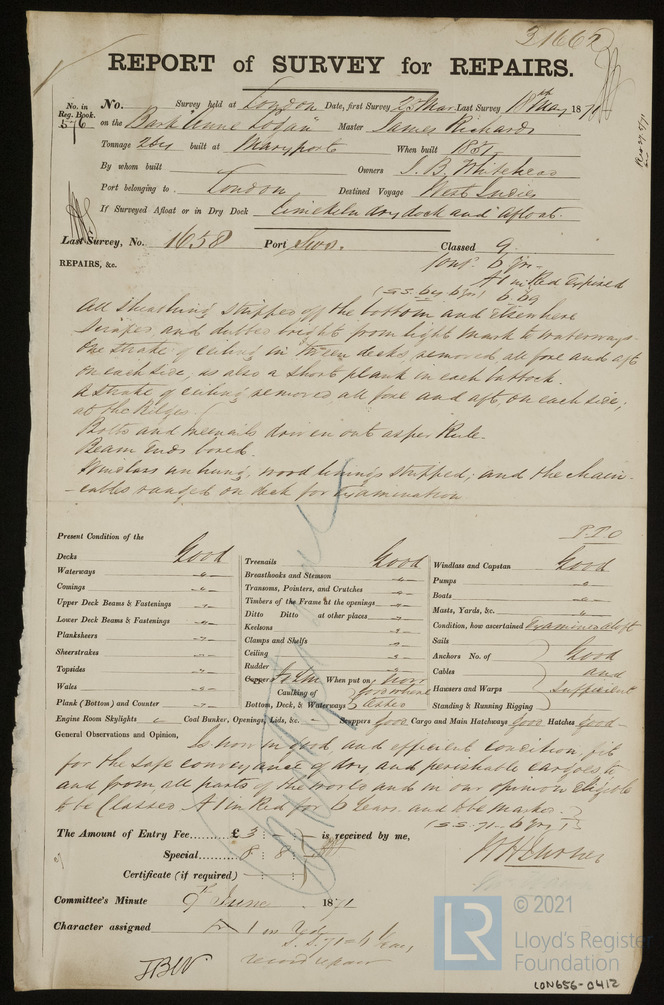 31662
REPORT of SURVEY for REPAIRS.
No. in Reg. Book. 576
No. Survey held at London Date, first Survey 25 Mar Last Survey 18th May 1871
on the Bark "Anne Logan" Master James Richards
Tonnage 264 built at Maryport When built 1857
By whom built Owners S. B. Whitehead
Port belonging to London Destined Voyage West Indies
If Surveyed Afloat or in Dry Dock Limekiln dry dock and afloat.
Last Survey, No. 1658 Port Sws. Classed 9
Cont. 6 yrs.
A1 in Red Expired
(S.S. 6 yrs) 6.69
REPAIRS, &c.
All sheathing stripped off the bottom and elsewhere
Scraped and dubbed bright from light mark to waterways.
One strake of ceiling in tween decks, removed all fore and aft
on each side; as also a short plank in each buttock.
A strake of ceiling removed all fore and aft, on each side;
at the Bilges
Bolts and treenails driven out as per Rule.
Beam Ends bored.
Windlass unhung, wood linings stripped; and the chain-
-cables ranged on deck for examination
P.T.O
Present Condition of the
Decks Good
Waterways "
Comings "
Upper Deck Beams & Fastenings "
Lower Deck Beams & Fastenings "
Planksheers "
Sheerstrakes "
Topsides "
Wales "
Plank (Bottom) and Counter "
Treenails Good
Breasthooks and Stemson "
Transoms, Pointers, and Crutches "
Timbers of the Frame at the openings "
Ditto Ditto at other places "
Keelsons "
Clamps and Shelfs "
Ceiling "
Rudder "
Copper When put on now
Caulking of Bottom, Deck, & Waterways
Windlass and Capstan Good
Pumps "
Boats "
Masts, Yards, &c. "
Condition, how ascertained Examined aloft
Sails
Anchors No. of Good
Cables and
Hawsers and Warps Sufficient
Standing & Running Rigging
Engine Room Skylights Coal Bunker, Openings, Lids, &c. Scuppers Good Cargo and Main Hatchways Good Hatches Good
General Observations and Opinion, Is now in good and efficient condition, fit
for the safe conveyance of dry and perishable cargoes to
and from all parts of the world and in our opinion eligible
to be Classed A1 in Red for 6 Years and to be marked
(S.S. 71. 6 yrs)
The Amount of Entry Fee........£ 3 : - : - is received by me,
Special........ 8 : 8 : -
Certificate (if required) : :
Committee's Minute 9th June 1871
Character assigned A 1 in Red
S.S. 71 - 6 Years
record repair
© 2021
LR
Lloyd's Register
Foundation
LON656-0412